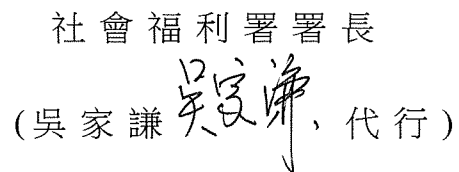 社會福利署署長
(吳家謙 吳家謙 代行)